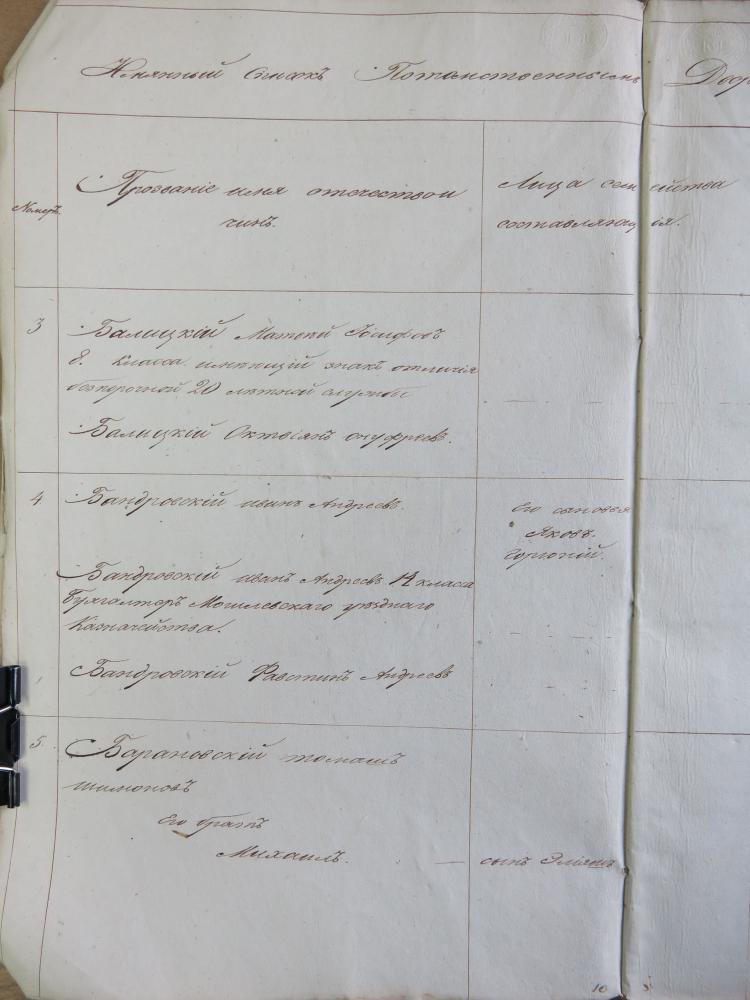 Имянный Списокъ Потомственнымъ Двор
Номеръ.
Прозваніе имя отечество и
чинъ.
Лица семейства
составляющія.
3
Балицкій Матвей Іосифовъ
8. класса имеющій знакъ отличія
безпорочной 20 летней службы
Балицкій Октвіянъ онуфреевъ.
4
Бандровскій иванъ Андреевъ.
Его сыновья
Яковъ.
Бандровскій иванъ Андреевъ 14 класа
Бухгалтеръ Могилевскаго уезднаго
Казначейства.
Бандровскій Фавстинъ Андреевъ
5.
Барановскій томашъ
шимоновъ
Его братъ
Михаилъ.
— сынъ